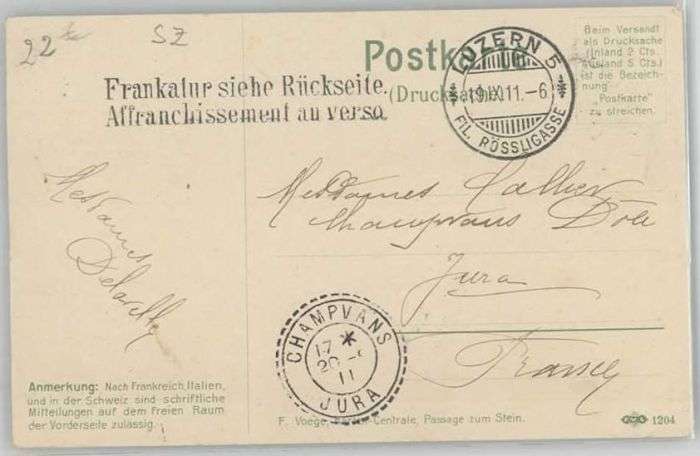 22
SZ
Postkarte
(Drucksache)
Frankatur siehe Rückseite.
Affranchissement au verso.
LUZERN 5
19.IX.11.-6
FIL. RÖSSLIGASSE
Beim Versandt
als Drucksache
(Inland 2 Cts.
Ausland 5 Cts.)
ist die Bezeich-
nung
"Postkarte"
zu streichen.
Mesdames
Mesdames
Champvans Dole
Jura
France
CHAMPVANS
17 *
20 -9
11
JURA
Anmerkung: Nach Frankreich, Italien,
und in der Schweiz sind schriftliche
Mitteilungen auf dem Freien Raum
der Vorderseite zulässig.
F. Voege, Karten-Centrale, Passage zum Stein.
1204